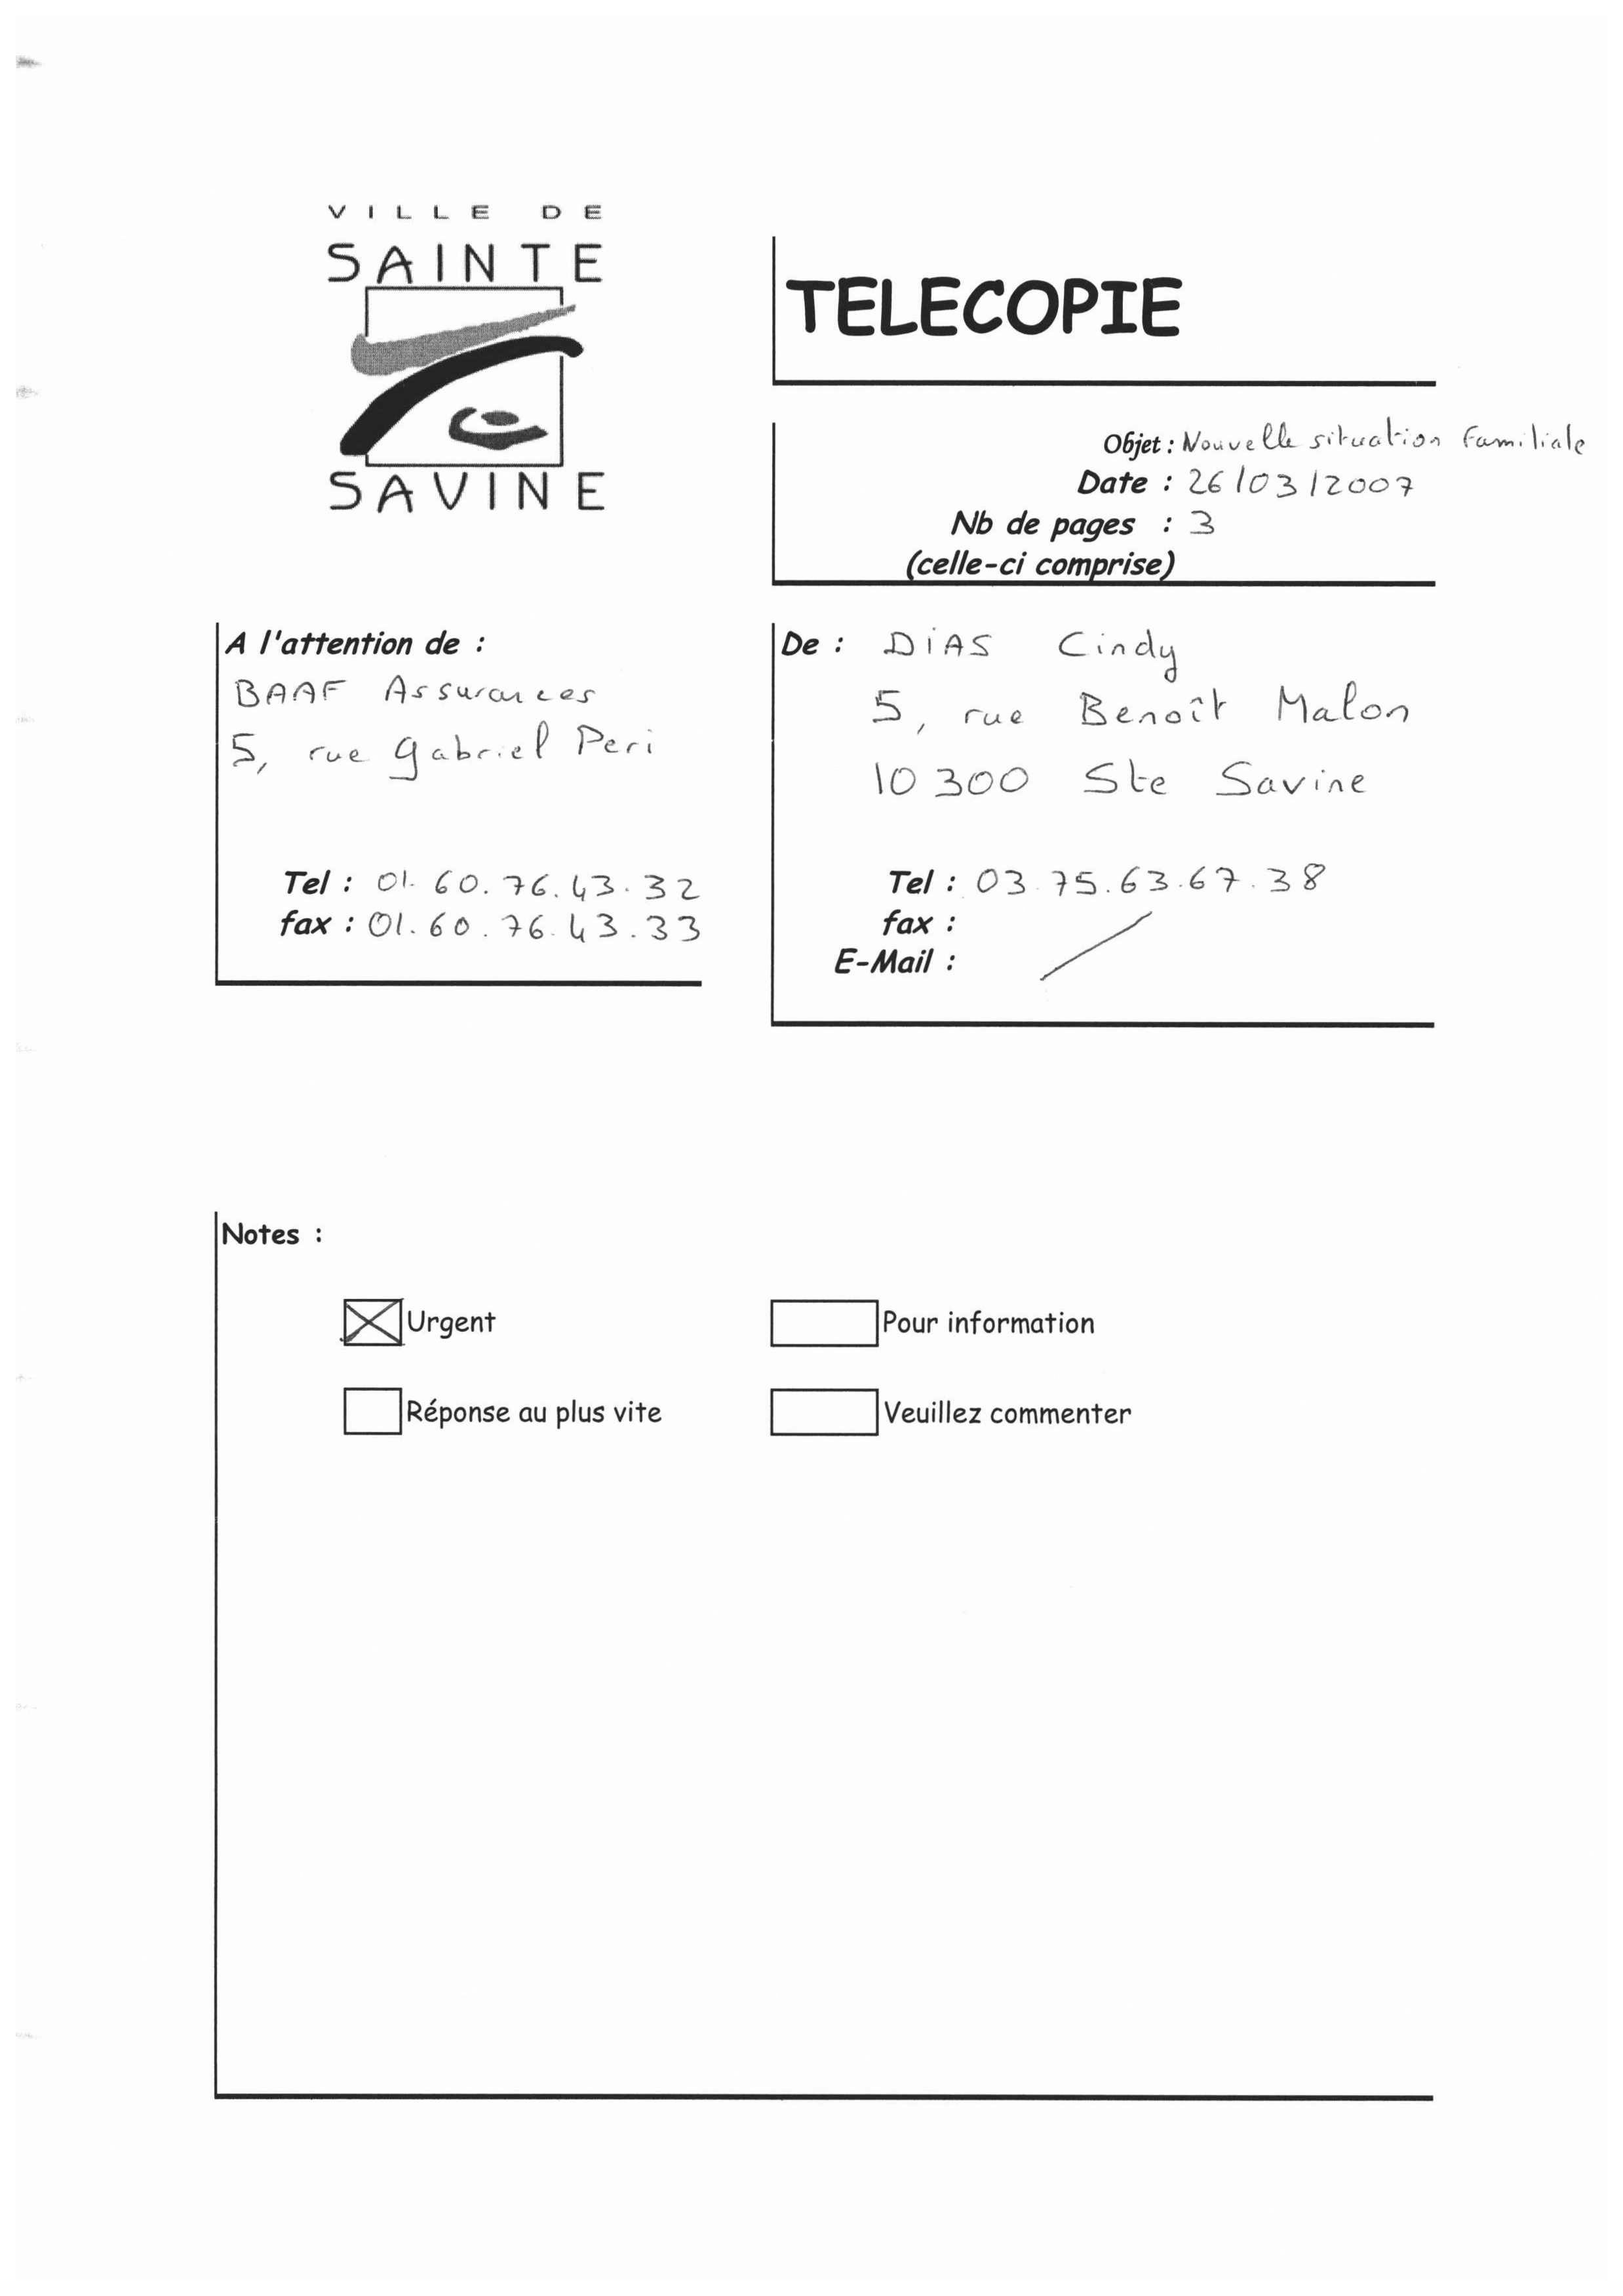 VILLE DE
SAINTE
SAVINE
TELECOPIE
Objet : Nouvelle situation familiale
Date : 26/03/2007
Nb de pages : 3
(celle-ci comprise)
A l'attention de :
BAAF Assurances
5, rue gabriel Peri
Tel : 01.60.76.43.32
fax : 01.60.76.43.33
De : DiAS Cindy
5, rue Benoît Malon
10 300 Ste Savine
Tel : 03.75.63.67.38
fax :
E-Mail :
Notes :
Urgent
Pour information
Réponse au plus vite
Veuillez commenter